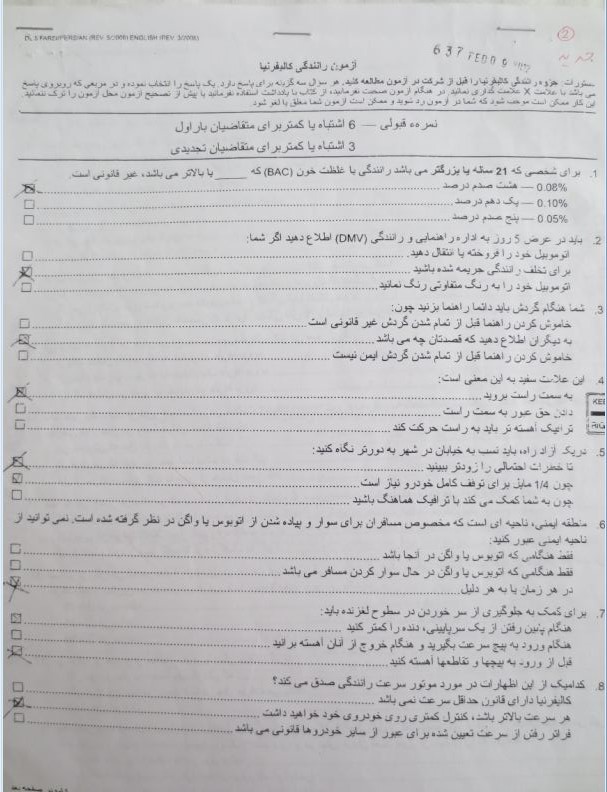 DL 5 FARSI/PERSIAN (REV. 5/2006) ENGLISH (REV. 5/2006)
2
637 FEB09
آزمون رانندگی کالیفرنیا
دستورات: جزوه رانندگی کالیفرنیا را قبل از شرکت در آزمون مطالعه کنید. هر سوال سه گزینه برای پاسخ دارد. یک پاسخ را انتخاب نموده و در مربعی که روبروی پاسخ
می باشد با علامت X علامت گذاری نمائید. در هنگام آزمون صحبت نفرمائید، از کتاب یا یادداشت استفاده نفرمائید یا پیش از تصحیح آزمون محل آزمون را ترک ننمائید.
این کار ممکن است موجب شود که شما در آزمون رد شوید و ممکن است آزمون شما معلق یا لغو شود
نمره قبولی — 6 اشتباه یا کمتر برای متقاضیان بار اول
3 اشتباه یا کمتر برای متقاضیان تجدیدی
1. برای شخصی که 21 ساله یا بزرگتر می باشد رانندگی با غلظت خون (BAC) که _____ یا بالاتر می باشد، غیر قانونی است.
0.08% — هشت صدم درصد
0.10% — یک دهم درصد
0.05% — پنج صدم درصد
2. باید در عرض 5 روز به اداره راهنمایی و رانندگی (DMV) اطلاع دهید اگر شما:
اتوموبیل خود را فروخته یا انتقال دهید.
برای تخلف رانندگی جریمه شده باشید
اتوموبیل خود را به رنگ متفاوتی رنگ نمائید
3. شما هنگام گردش باید دائما راهنما بزنید چون:
خاموش کردن راهنما قبل از تمام شدن گردش غیر قانونی است
به دیگران اطلاع دهید که قصدتان چه می باشد
خاموش کردن راهنما قبل از تمام شدن گردش ایمن نیست
4. این علامت سفید به این معنی است:
به سمت راست بروید
دادن حق عبور به سمت راست
ترافیک آهسته تر باید به راست حرکت کند
5. در یک آزاد راه، باید نسب به خیابان در شهر به دورتر نگاه کنید:
تا خطرات احتمالی را زودتر ببینید
چون 1/4 مایل برای توقف کامل خودرو نیاز است
چون به شما کمک می کند با ترافیک هماهنگ باشید
6. منطقه ایمنی، ناحیه ای است که مخصوص مسافران برای سوار و پیاده شدن از اتوبوس یا واگن در نظر گرفته شده است. نمی توانید از
ناحیه ایمنی عبور کنید:
فقط هنگامی که اتوبوس یا واگن در آنجا باشد
فقط هنگامی که اتوبوس یا واگن در حال سوار کردن مسافر می باشد
در هر زمان یا به هر دلیل
7. برای کمک به جلوگیری از سر خوردن در سطوح لغزنده باید:
هنگام پایین رفتن از یک سرپایینی، دنده را کمتر کنید
هنگام ورود به پیچ سرعت بگیرید و هنگام خروج از آنان آهسته برانید
قبل از ورود به پیچها و تقاطعها آهسته کنید
8. کدامیک از این اظهارات در مورد موتور سرعت رانندگی صدق می کند؟
کالیفرنیا دارای قانون حداقل سرعت نمی باشد
هر سرعت بالاتر باشد، کنترل کمتری روی خودروی خود خواهید داشت
فراتر رفتن از سرعت تعیین شده برای عبور از سایر خودروها قانونی می باشد